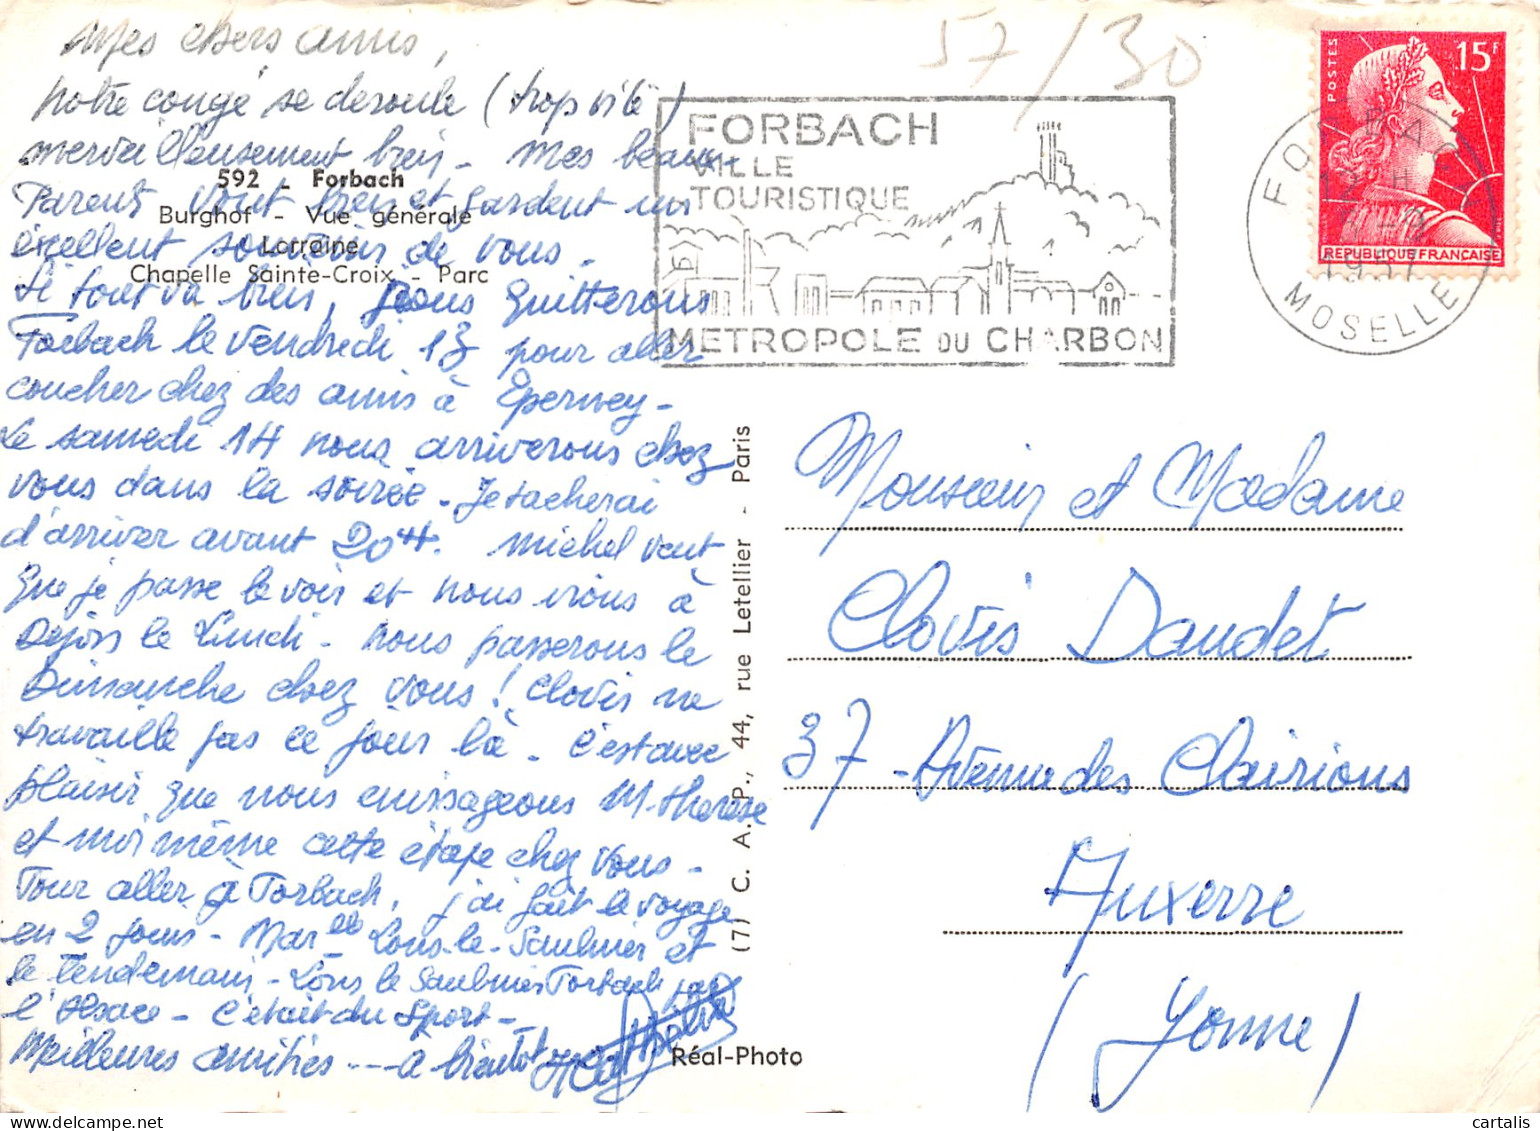 Mes chers amis,
Notre congé se deroule (trop vite)
merveilleusement bien - Mes beaux-
Parents vont bien et gardent un
excellent souvenir de vous -
Si tout va bien, nous quitterons
Forbach le vendredi 13 pour aller
coucher chez des amis à Epernay -
Le samedi 14 nous arriverons chez
vous dans la soirée - Je tacherai
d'arriver avant 20H. Michel veut
que je passe le voir et nous irons à
Dijon le Lundi - Nous passerons le
Dimanche chez vous! Clovis ne
travaille pas ce jour là - C'est avec
plaisir que nous envisageons M. Therese
et moi même cette étape chez vous -
Pour aller à Forbach, j'ai fait le voyage
en 2 jours - Mar^lle Lons-le-Saulnier et
le lendemain - Lons le Saulnier Forbach par
l'Alsace - C'était du sport -
Meilleures amitiés --- à bientôt
592 - Forbach
Burghof - Vue générale
Lorraine
Chapelle Sainte-Croix - Parc
57/30
FORBACH
VILLE
TOURISTIQUE
METROPOLE DU CHARBON
FORBACH
1957
MOSELLE
POSTES
15F
REPUBLIQUE FRANÇAISE
(7) C. A. P., 44, rue Letellier - Paris
Réal-Photo
Monsieur et Madame
Clovis Daudet
37 - Avenue des Clairions
Auxerre
(Yonne)
cartalis